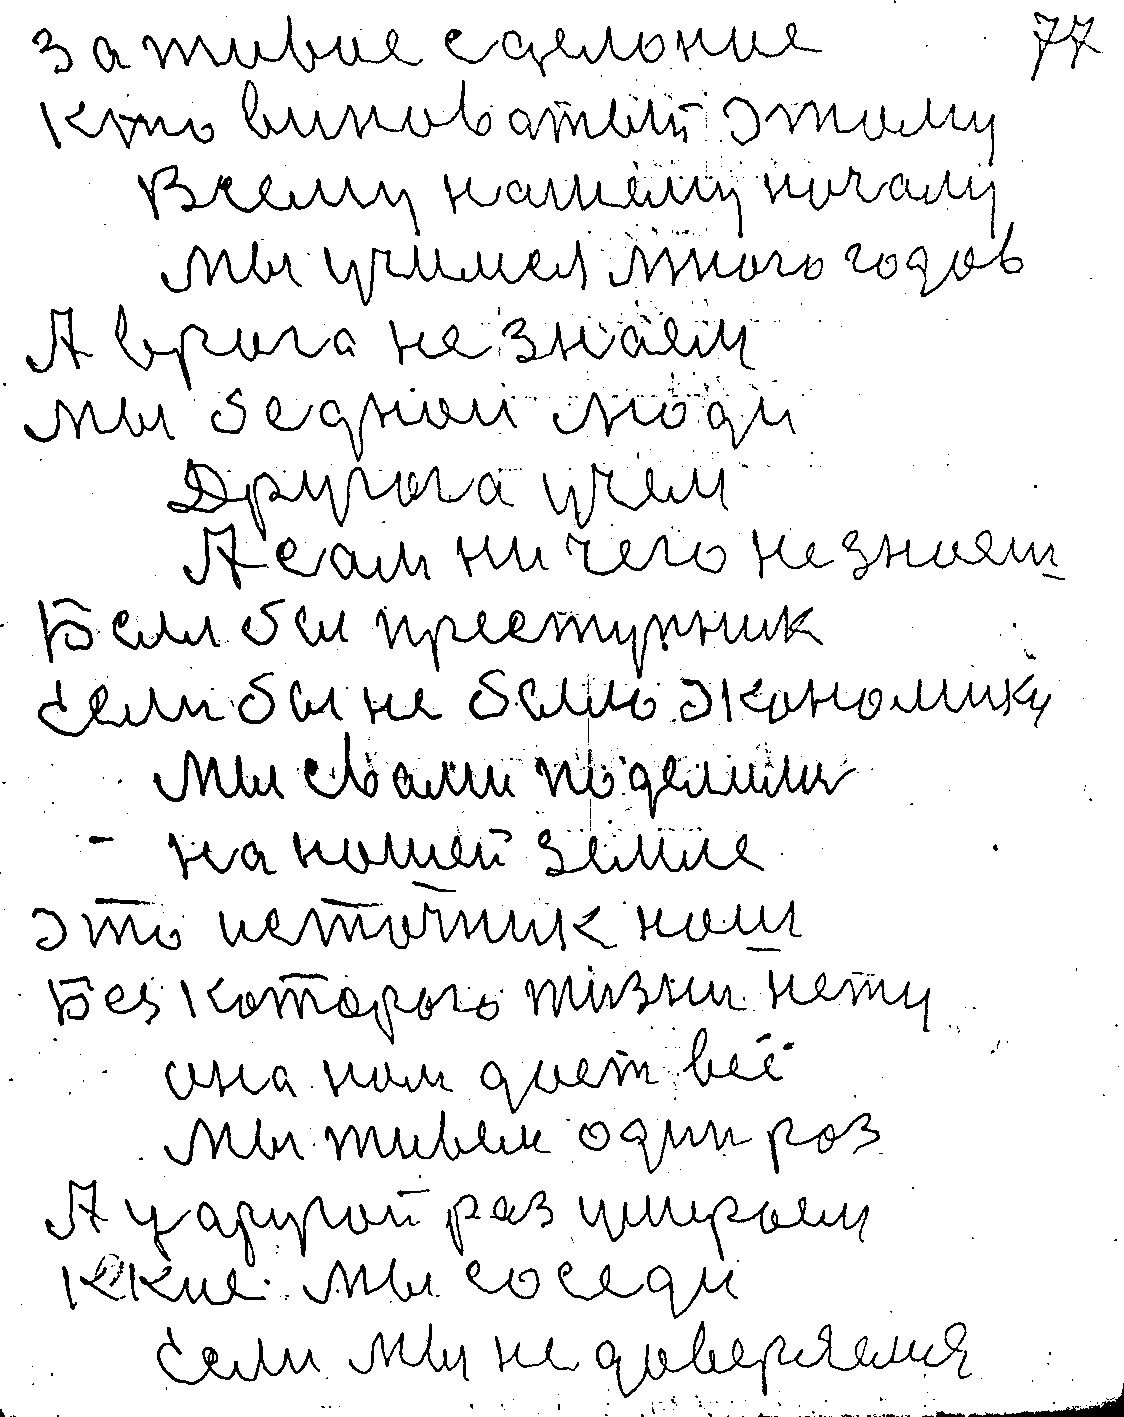 За живое сделоние 77
Кто виноватый этому
Всему нашему ночалу
Мы учимся много годов
А врога не знаем
Мы бедной люди
Другога учем
А сам ни чего не зноет
Если бы преступник
Если бы не было экономику
Мы свами поделили
на ношей земле
Это источник нош
Без которого жизни нету
она ном доет всё
Мы живем один роз
А у другой раз умироем
мы соседи
Если мы не доверяемся